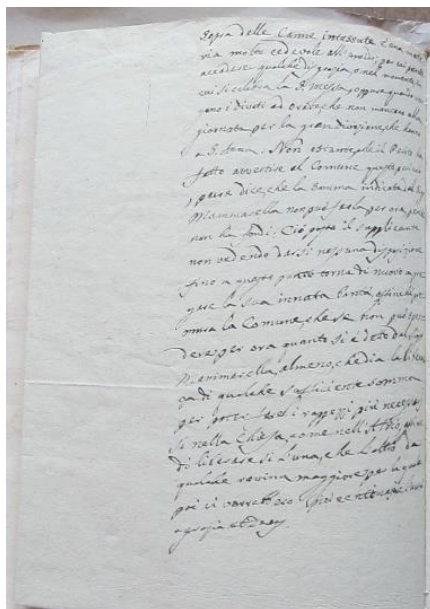 sopra delle Canne intessute è una mate
ria molto cedevole
accadere qualche disgrazia, o nel momento, in
cui si celebra la S. Messa, oppure quando ven
gono i divoti ad orare, che non mancano alla
giornata per la gran divozione, che hanno
a S. Anna. Non ostante, che il Perito ha
fatto avvertire al Comune questo
pure dice, che la somma indicata dal Sig.
Mammarella non può farla per ora, perché
non ha fondi. Ciò posto il supplicante
non vedendo darsi nessuna disposizione
fino a questo punto torna di nuovo a pre
gare la sua innata bontà, affinché
la Comune, che se non può spen
dere per ora quanto si è detto dal Sig.
Mammarella, almeno, che dia la licen
za di qualche sufficiente somma
per poter farsi i rappezzi più necessar
si nella Chiesa, come nell'Atrio,
di liberare sì l'una, che l'altro da
qualche rovina maggiore, per la quale
poi ci vorrebbero
a grazia ut Deus